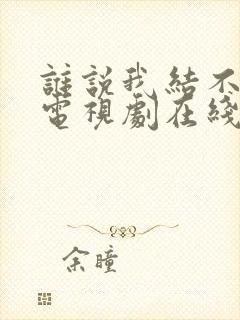 誰說我結不
電視劇在綫
余瞳